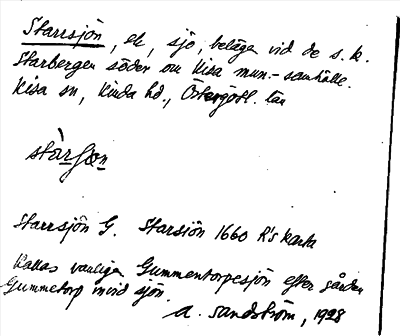 Starrsjön, ek, sjö, belägen vid de s.k.
Starbergen söder om Kisa mun.-samhälle.
Kisa sn, Kinda hd., Östergötl. län
Starrsjön G. Starsiön 1660 R's karta
Kallas vanligen Gummentorpesjön efter gården
Gummetorp invid sjön.
A. Sandström, 1928